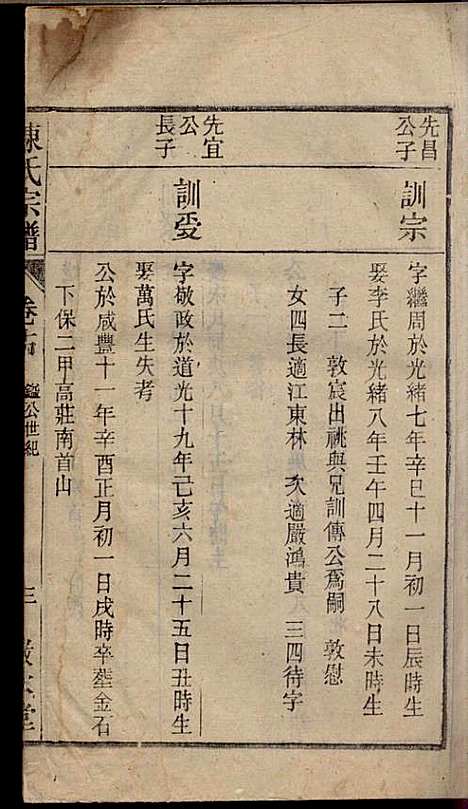 先昌
公子
訓宗
字繼周於光緒七年辛巳十一月初一日辰時生
娶李氏於光緒八年壬午四月二十八日未時生
子二　敦宸出祧與兄訓傳公爲嗣　敦慰
女四長適江東林　次適嚴鴻貴　三四待字
先宜
公
長子
訓受
字敬政於道光十九年己亥六月二十五日丑時生
娶萬氏生失考
公於咸豐十一年辛酉正月初一日戌時卒塟金石
下保二甲高莊南首山
陳氏宗譜
卷
公世紀
三
堂